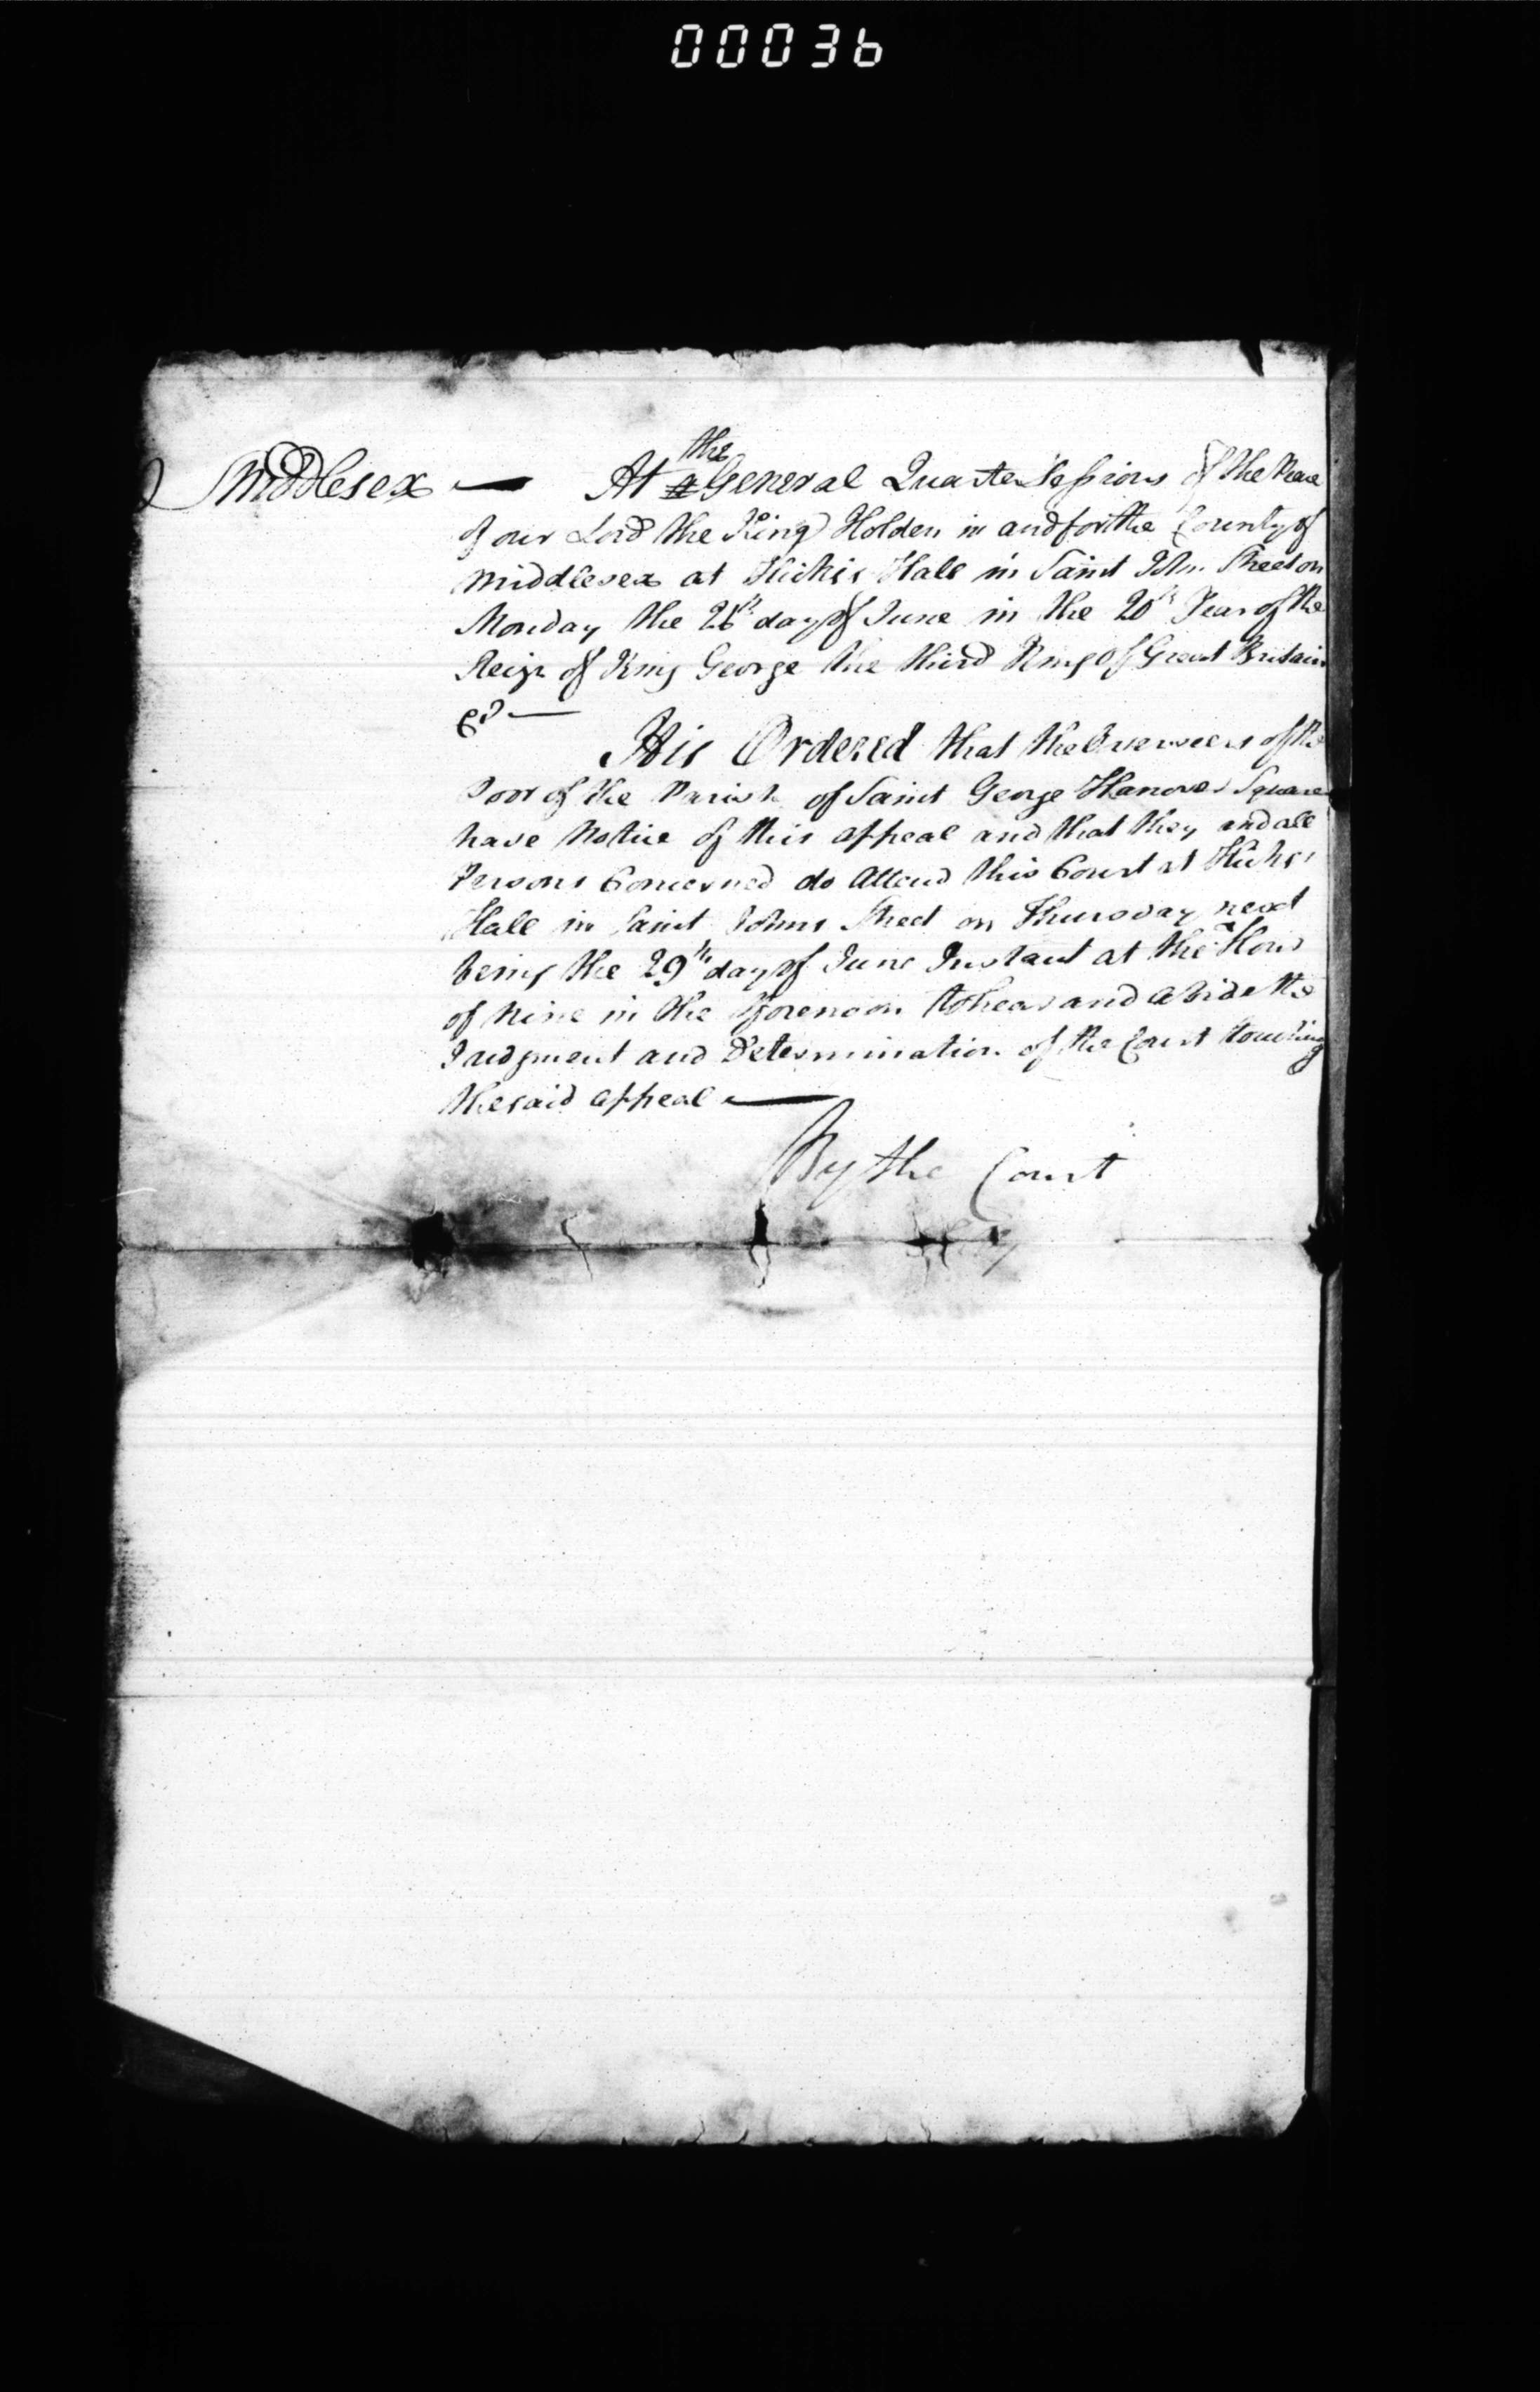 000036
Middlesex — At a the General Quarter Sessions of the Peace
of our Lord the King Holden in and for the County of
Middlesex at Hicks's Hall in Saint John Street on
Monday the 26th day of June in the 20th Year of the
Reign of King George the third King of Great Britain
&c —
It is Ordered that the Overseers of the
Poor of the Parish of Saint George Hanover Square
have Notice of this appeal and that they and all
Persons Concerned do Attend this Court at Hicks's
Hall in Saint Johns Street on Thursday next
being the 29th day of June Instant at the Hour
of Nine in the Forenoon to hear and abide the
Judgment and Determination of the Court touching
the said appeal —
By the Court